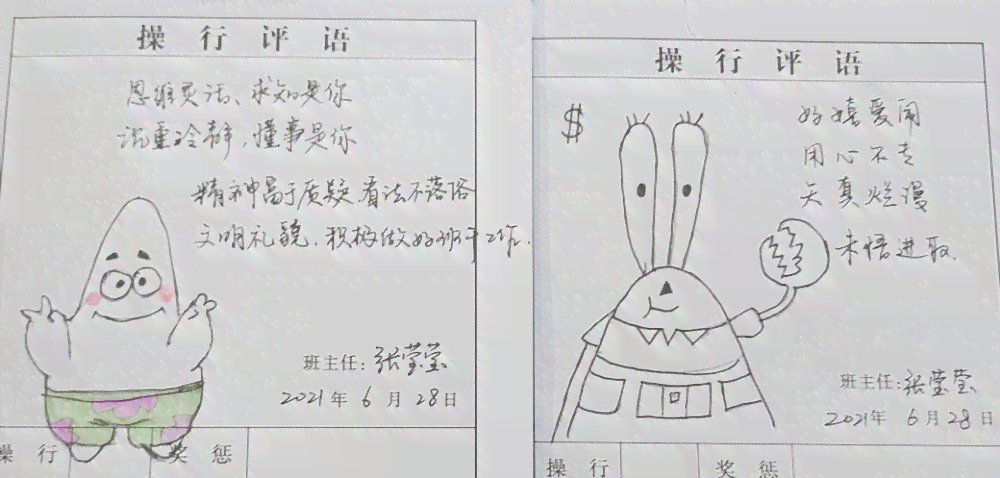 操行评语
思维灵活、求知是你
沉重冷静,懂事是你
精神富于质疑,看法不落俗
文明礼貌,积极做好班干工作.
班主任:张莹莹
2021年 6月 28日
操行
奖惩
操行评语
$
好嬉爱闹
用心不专
天真烂漫
未悟进取
班主任:张莹莹
2021年 6月 28日
操行
奖惩